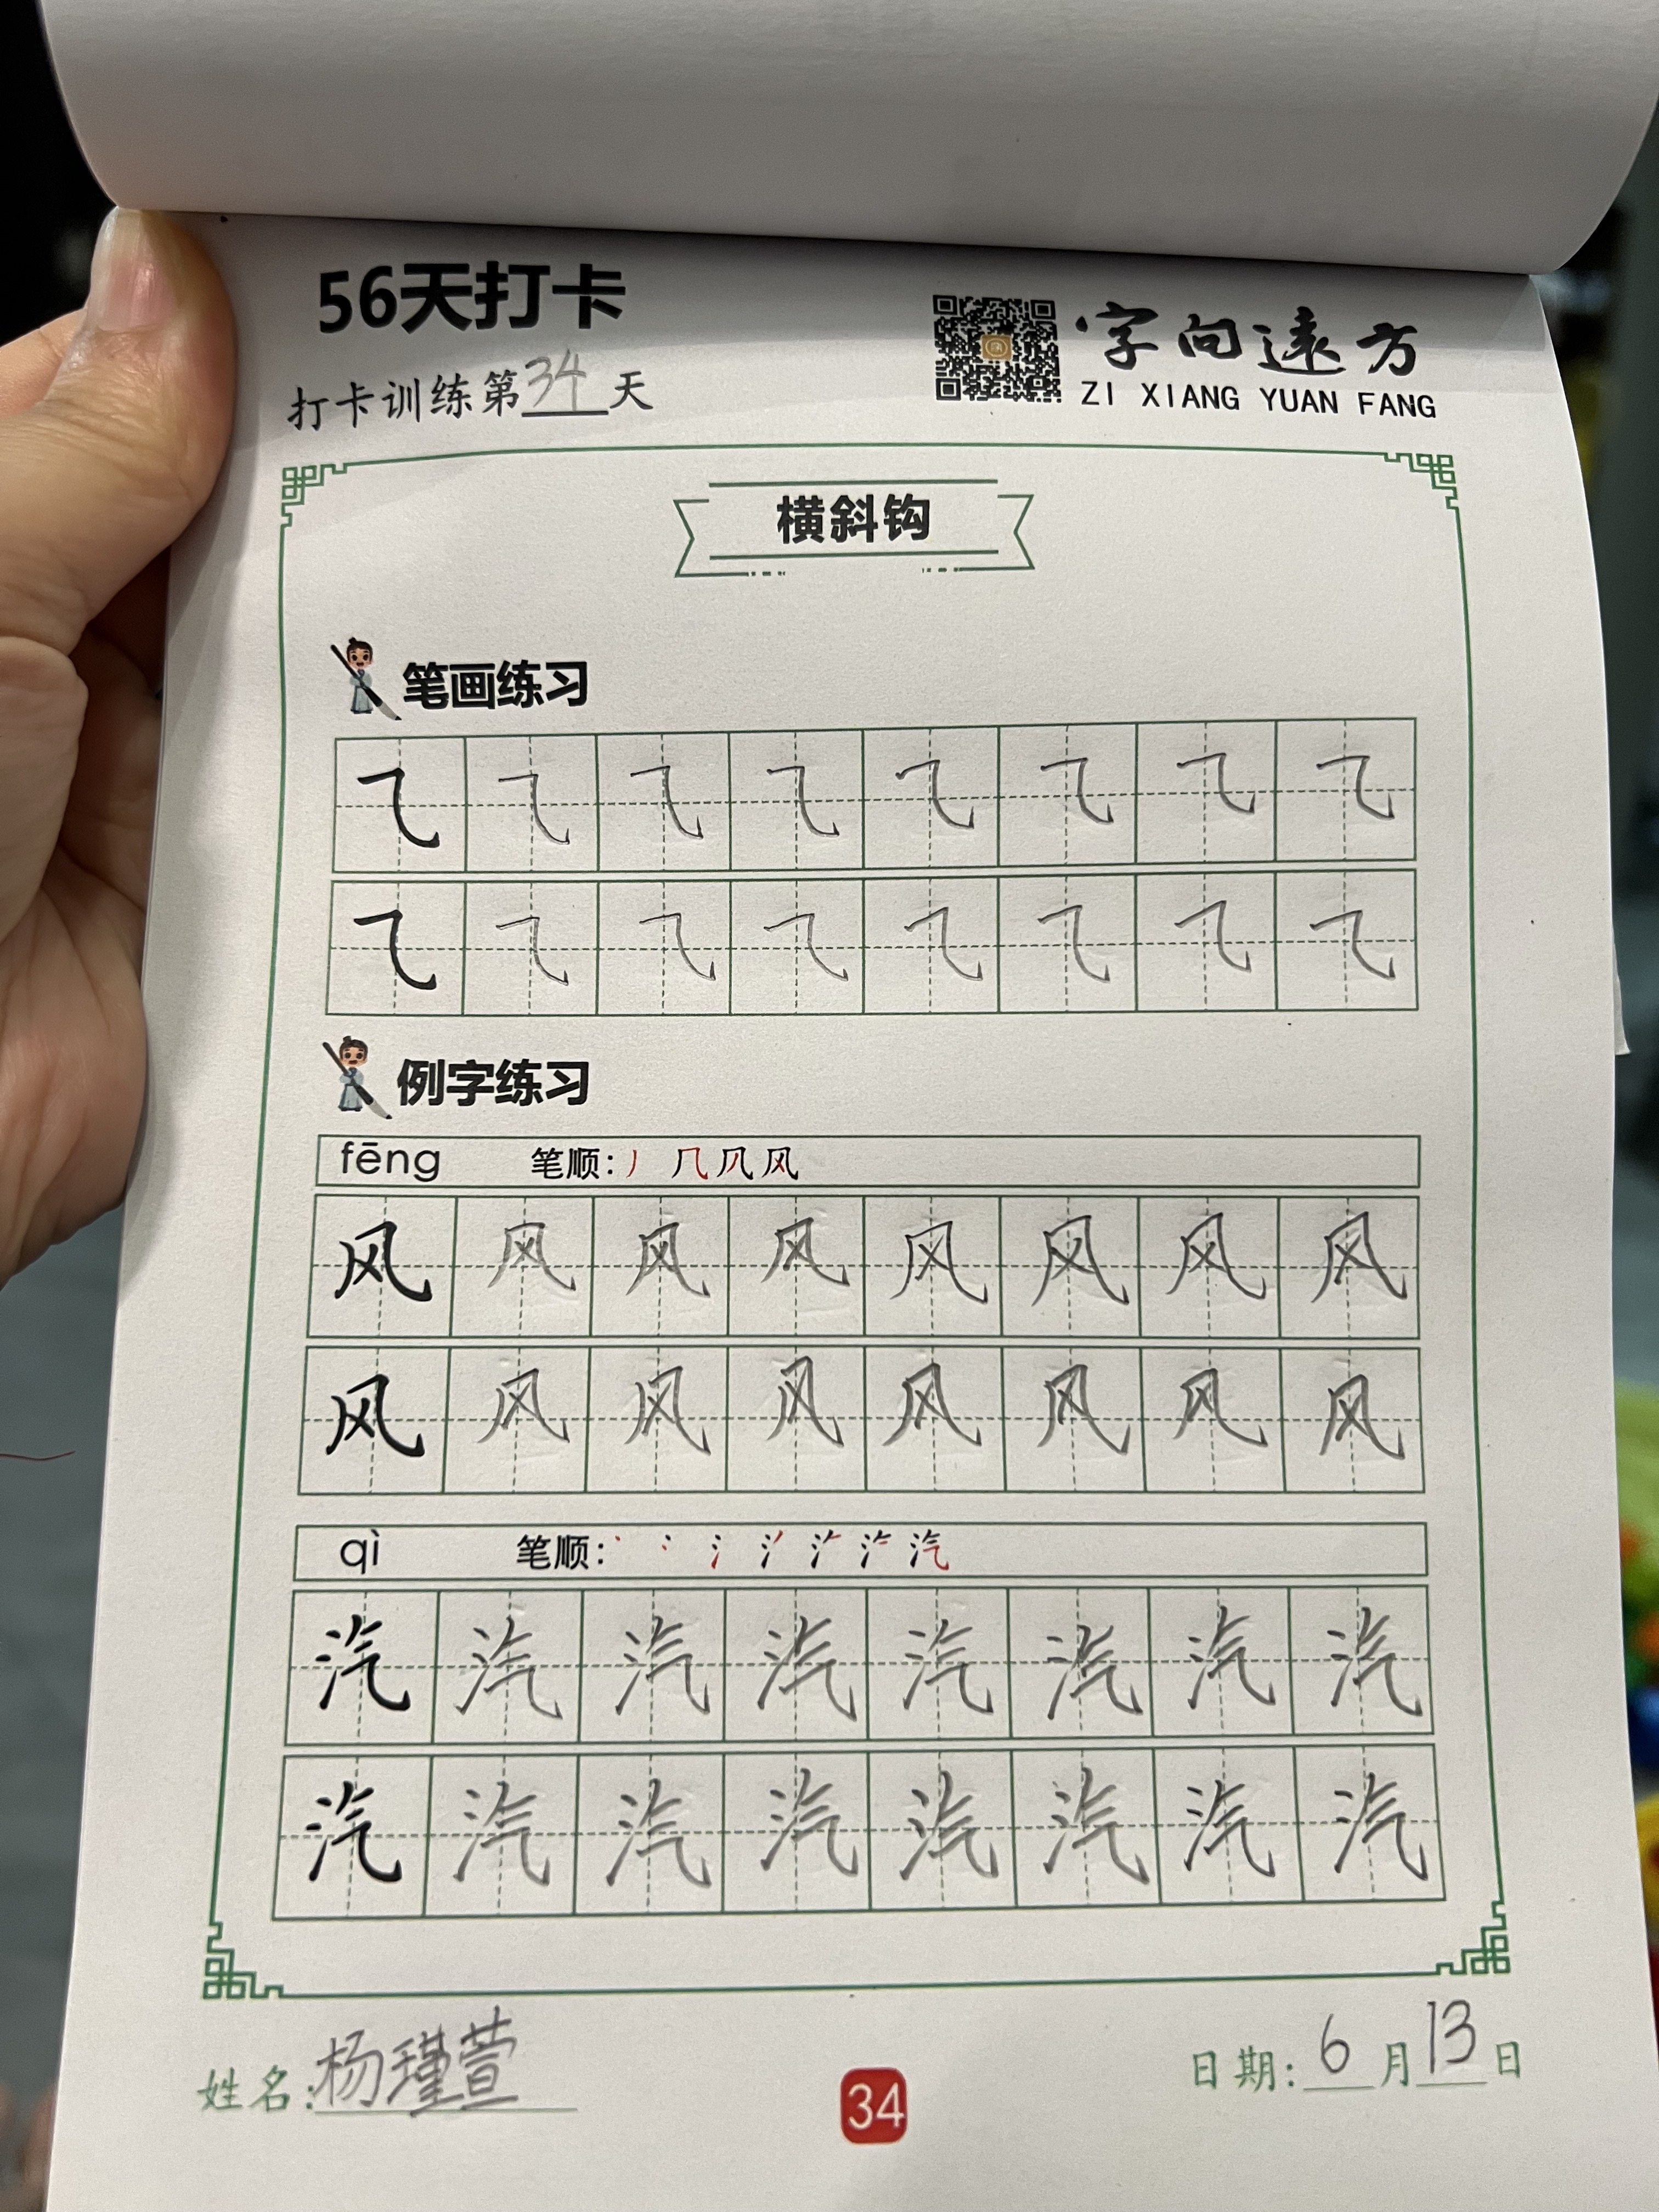 56天打卡
字向远方
打卡训练第34天
ZI XIANG YUAN FANG
横斜钩
笔画练习
⺄ ⺄ ⺄ ⺄ ⺄ ⺄ ⺄ ⺄
⺄ ⺄ ⺄ ⺄ ⺄ ⺄ ⺄ ⺄
例字练习
fēng 笔顺: 丿 几 凤 风
风 风 风 风 风 风 风 风
风 风 风 风 风 风 风 风
qì 笔顺: 汽
汽 汽 汽 汽 汽 汽 汽 汽
汽 汽 汽 汽 汽 汽 汽 汽
姓名:杨瑾萱
日期:6月13日
34